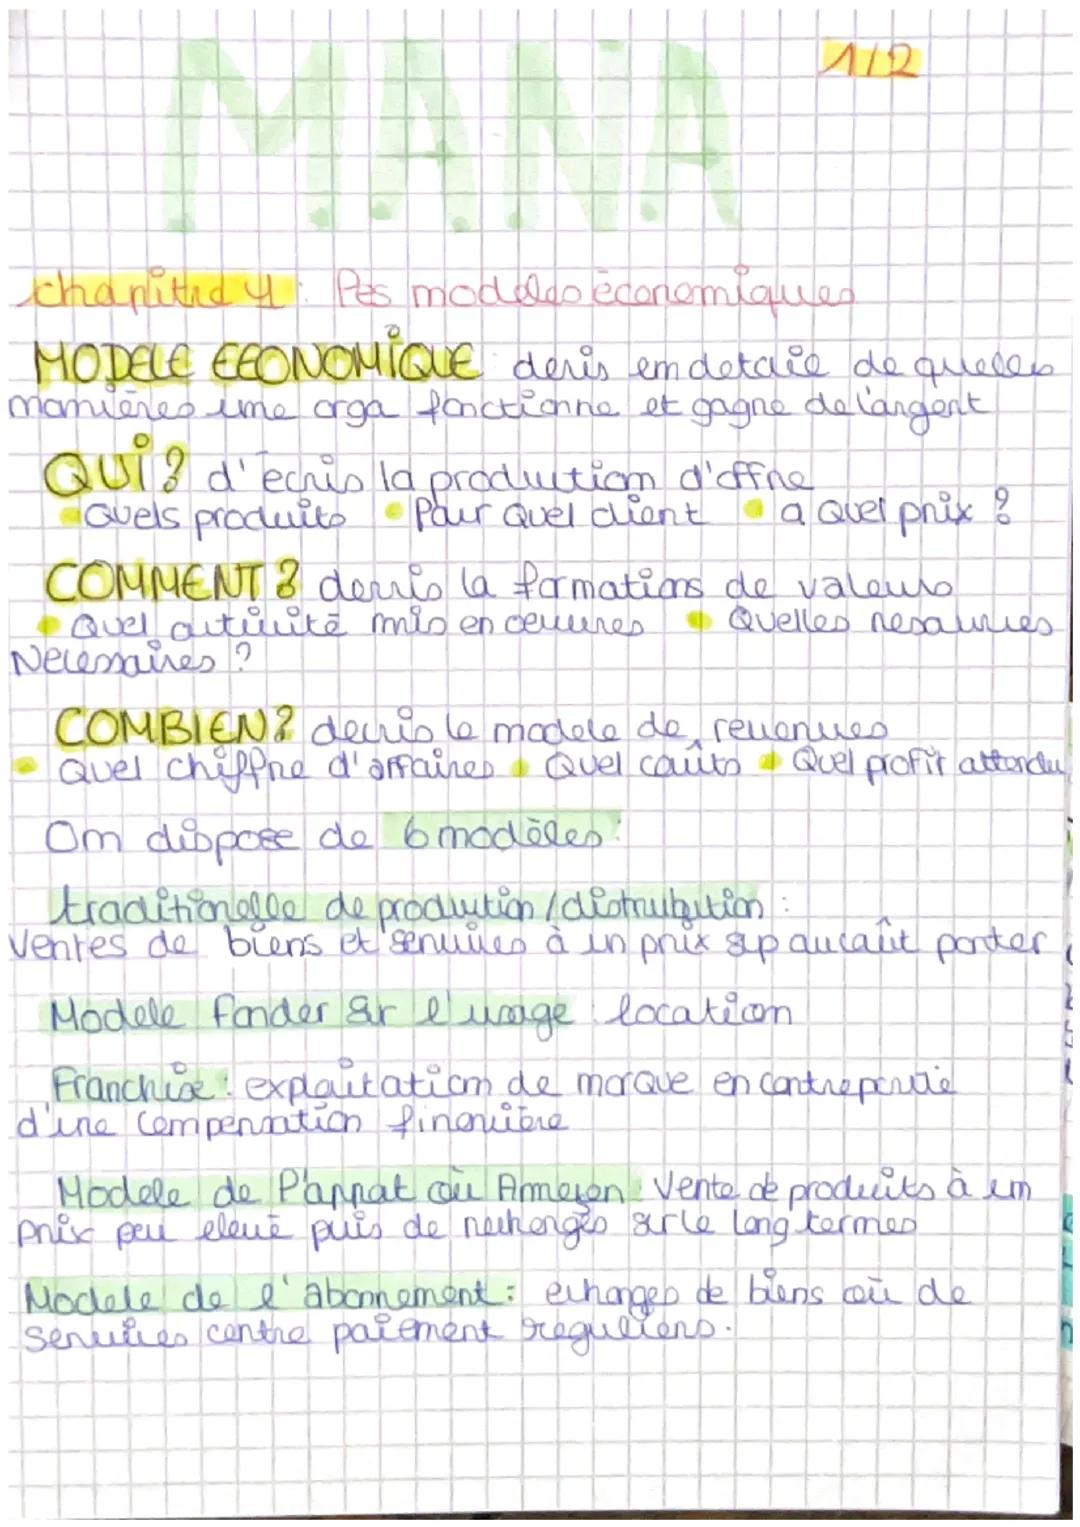 MANA
1/2
chapitre 4 : les modeles économiques
MODELE ECONOMIQUE : decris en detaile de quelles
manières une orga fonctionne et gagne de l'argent
QUI ? d'ecris la production d'offre
Quels produits • Pour Quel client • a Quel prix ?
COMMENT ? decris la formations de valeurs
• Quel activité mis en oeuvres • Quelles ressources
Necessaires ?
COMBIEN ? decris le modele de revenues
• Quel chiffre d'affaires • Quel coûts • Quel profit attendu
On dispose de 6 modèles :
traditionelle de production / distribution :
Ventes de biens et services à un prix sup au coût porter
Modele fonder sur l'usage : location
Franchise : exploitation de marque en contrepartie
d'une compensation financière
Modele de l'appat où Ameçon : Vente de produits à un
prix peu elevé puis de recharges sur le long termes
Modele de l'abonnement : echanges de biens où de
services contre paiement réguliers.